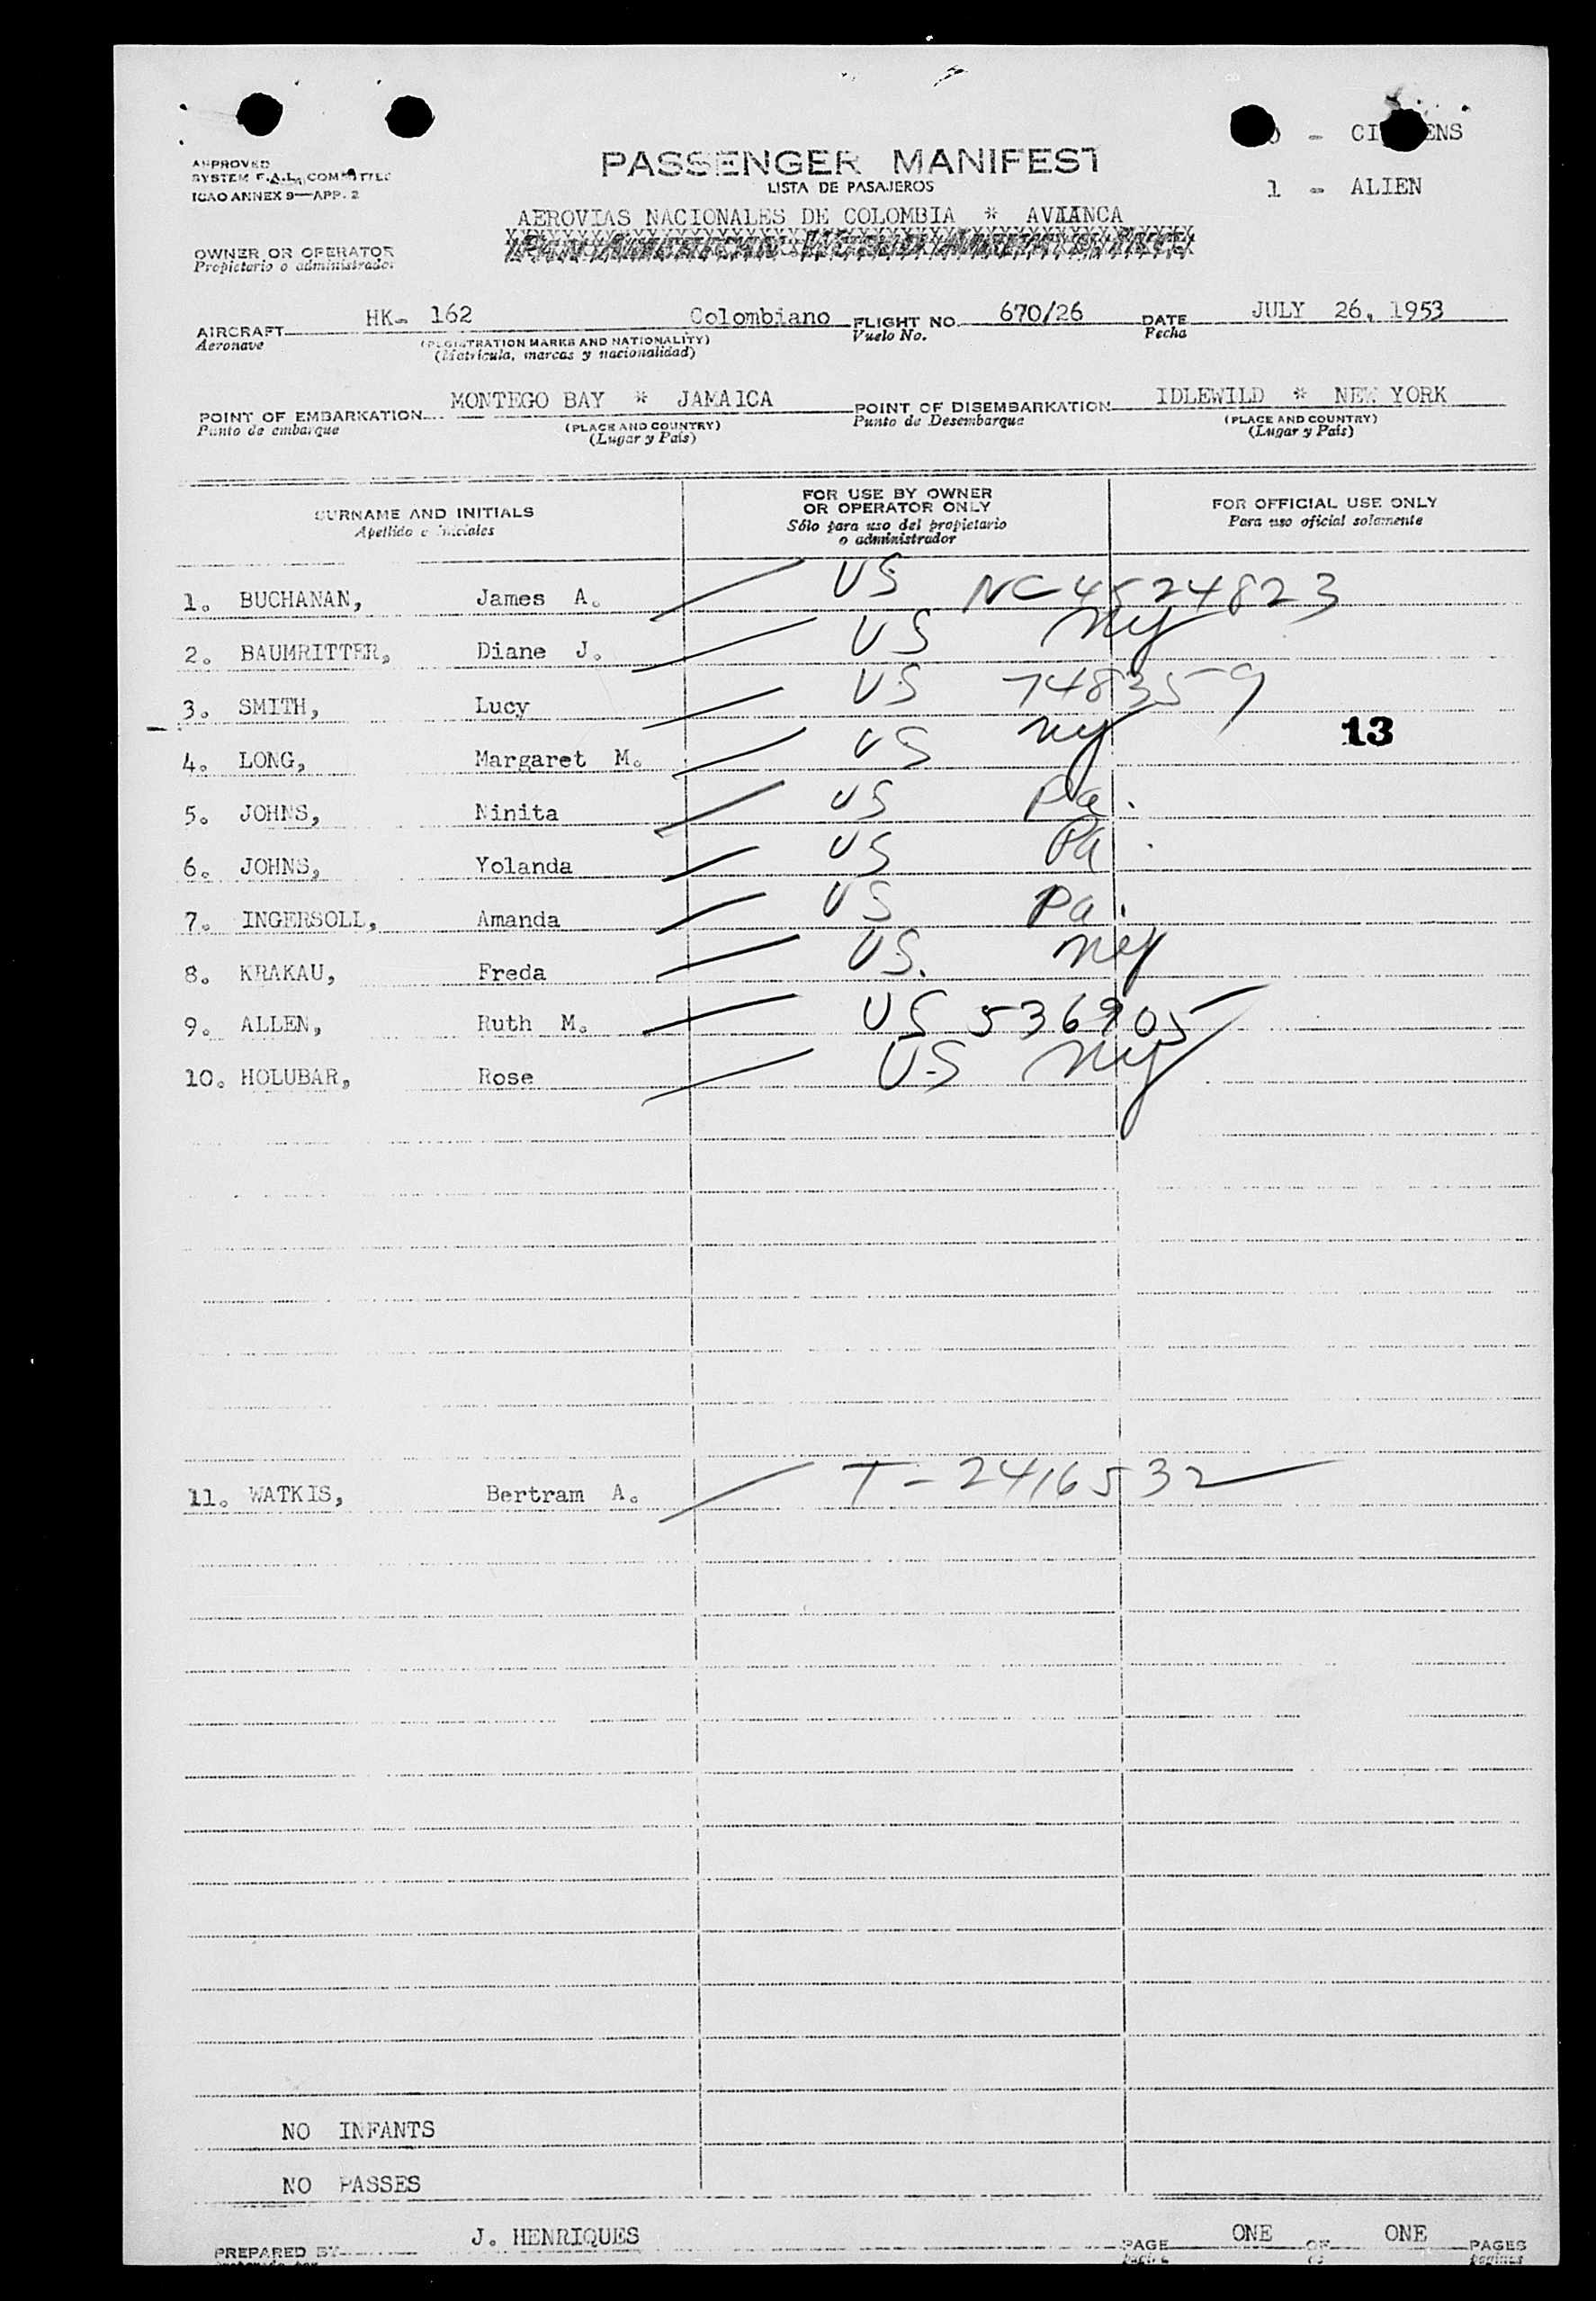 CI ENS
APPROVED
SYSTEM F.A.L. COMMITTEE
ICAO ANNEX 9—APP. 2
PASSENGER MANIFEST
LISTA DE PASAJEROS
1 - ALIEN
AEROVIAS NACIONALES DE COLOMBIA * AVIANCA
PAN AMERICAN WORLD AIRWAYS, INC.
OWNER OR OPERATOR
Propietario o administrador
AIRCRAFT HK- 162 Colombiano FLIGHT NO. 670/26 DATE JULY 26, 1953
Aeronave (REGISTRATION MARKS AND NATIONALITY) Vuelo No. Fecha
(Matrícula, marcas y nacionalidad)
POINT OF EMBARKATION MONTEGO BAY * JAMA1CA POINT OF DISEMBARKATION IDLEWILD * NEW YORK
Punto de embarque (PLACE AND COUNTRY) Punto de Desembarque (PLACE AND COUNTRY)
(Lugar y País) (Lugar y País)
SURNAME AND INITIALS
Apellido e iniciales
FOR USE BY OWNER
OR OPERATOR ONLY
Sólo para uso del propietario
o administrador
FOR OFFICIAL USE ONLY
Para uso oficial solamente
1. BUCHANAN, James A. US NC-4524823
2. BAUMRITTER, Diane J. US NY
3. SMITH, Lucy US 748359
4. LONG, Margaret M. US NY
13
5. JOHNS, Ninita US Pa.
6. JOHNS, Yolanda US Pa.
7. INGERSOLL, Amanda US Pa.
8. KRAKAU, Freda US. NY
9. ALLEN, Ruth M. US 536905
10. HOLUBAR, Rose US NY
11. WATKIS, Bertram A. T-2416532
NO INFANTS
NO PASSES
PREPARED BY J. HENRIQUES PAGE ONE OF ONE PAGES